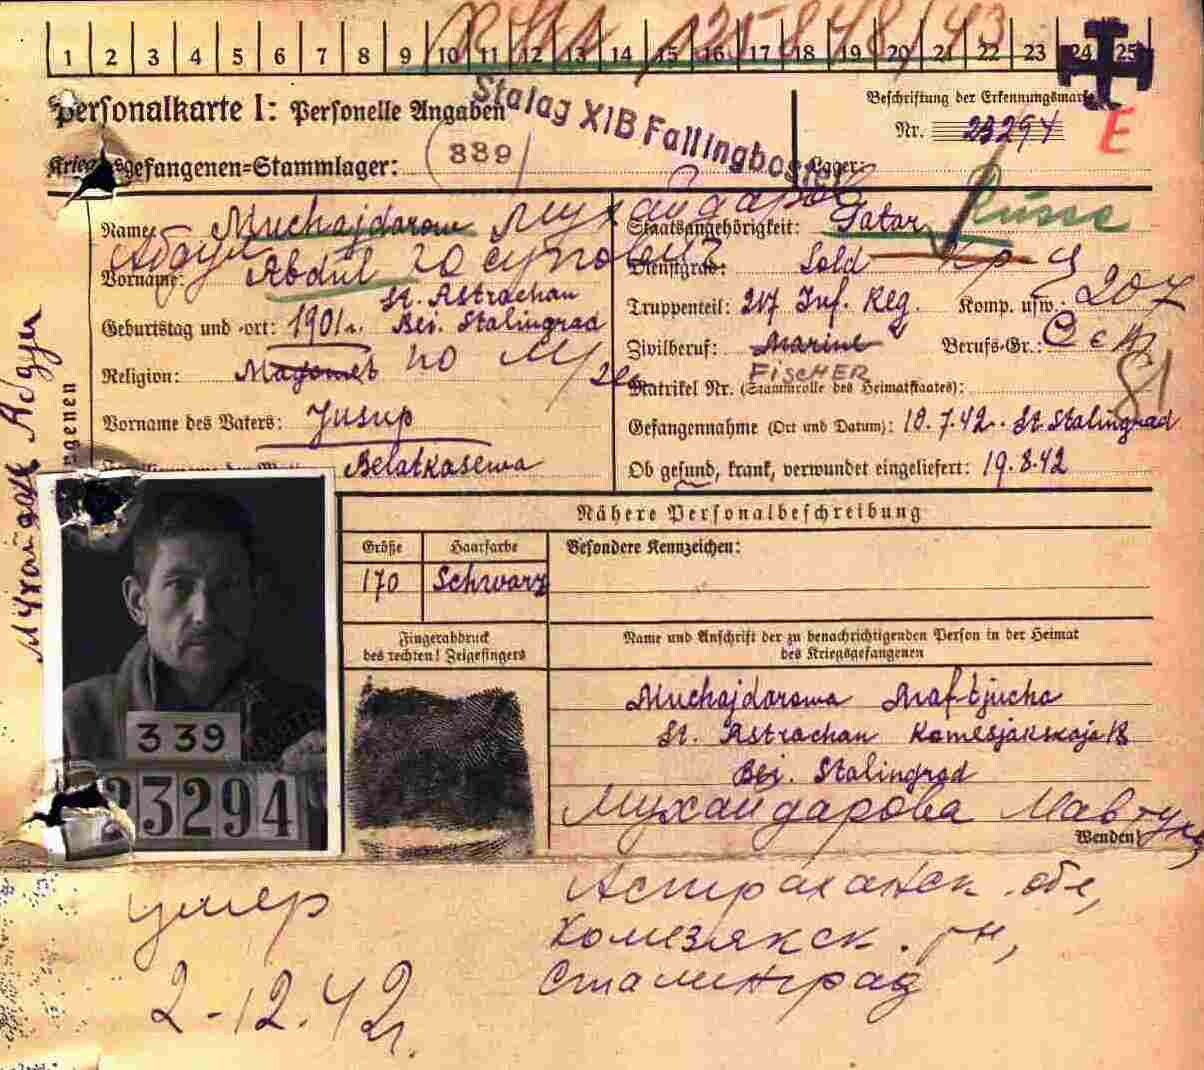 125848/43
1 2 3 4 5 6 7 8 9 10 11 12 13 14 15 16 17 18 19 20 21 22 23 24 25
Personalkarte I: Personelle Angaben
Stalag XIB Fallingbostel
Beschriftung der Erkennungsmarke
Nr. 23294
E
Kriegsgefangenen-Stammlager:
339
Lager:
Name: Muchajdarow Мухайдаров
Абдул Юсупович
Vorname: Abdul
St. Astrachan
Geburtstag und -ort: 1901. Bei. Stalingrad
Religion: Magomet
Vorname des Vaters: Jusup
Belatkasewa
Staatsangehörigkeit: Tatar Russe
Dienstgrad: Sold
Truppenteil: 217 Inf. Reg. Komp. usw.: 207
Zivilberuf: Marine Berufs-Gr.:
FISCHER
Matrikel Nr. (Stammrolle des Heimatstaates):
Gefangennahme (Ort und Datum): 10.7.42. St. Stalingrad
Ob gesund, krank, verwundet eingeliefert: 19.8.42
genen
Nähere Personalbeschreibung
Größe Haarfarbe Besondere Kennzeichen:
170 Schwarz
Fingerabdruck
des rechten! Zeigefingers
Name und Anschrift der zu benachrichtigenden Person in der Heimat
des Kriegsgefangenen
339
23294
Muchajdarowa Maftjucha
St. Astrachan Komesjakskaja 18
Bei. Stalingrad
Мухайдарова
Wenden!
умер
2-12.42г.
Астраханск. обл,
Комезякск. рн,
Сталинград